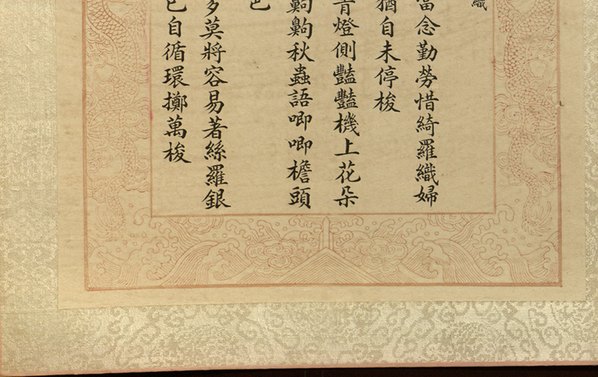 織
當念勤勞惜綺羅織婦
猶自未停梭
青燈側豔豔機上花朵
齁齁秋蟲語唧唧檐頭
色
多莫將容易著絲羅銀
已自循環擲萬梭